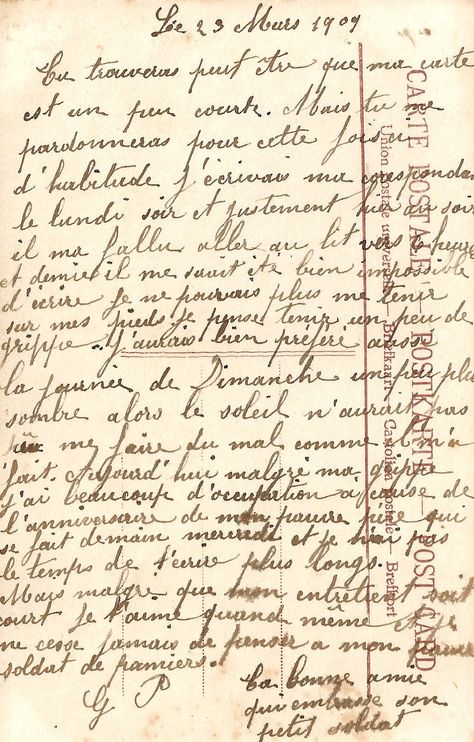 Le 23 Mars 1909
Tu trouveras peut être que ma carte
est un peu courte. Mais tu me
pardonneras pour cette fois ci
d'habitude j'écrivais ma corespondan
le lundi soir et justement hier au soir
il ma fallu aller au lit vers 6 heure
et demie il me serait été bien impossible
d'écrire je ne pouvais plus me tenir
sur mes pieds je pense tenir un peu de
grippe. J'aurais bien préféré aussi
la journée de Dimanche un peu plus
sombre alors le soleil n'aurait pas
pu me faire du mal comme il m'a
fait. Aujourd'hui malgré ma grippe
j'ai beaucoup d'occupation a cause de
l'anniversaire de mon pauvre père qui
se fait demain mercredi et je n'ai pas
le temps de t'écrire plus longs.
Mais malgre que mon entretient soit
court je t'aime quand même et je
ne cesse jamais de penser a mon pauvre
soldat de pamiers.
G P
Ta bonne amie
qui embrasse son
petit soldat
CARTE POSTALE — POSTKARTE — POST CARD
Union postale universelle — Briefkaart — Cartolina postale — Brefkort